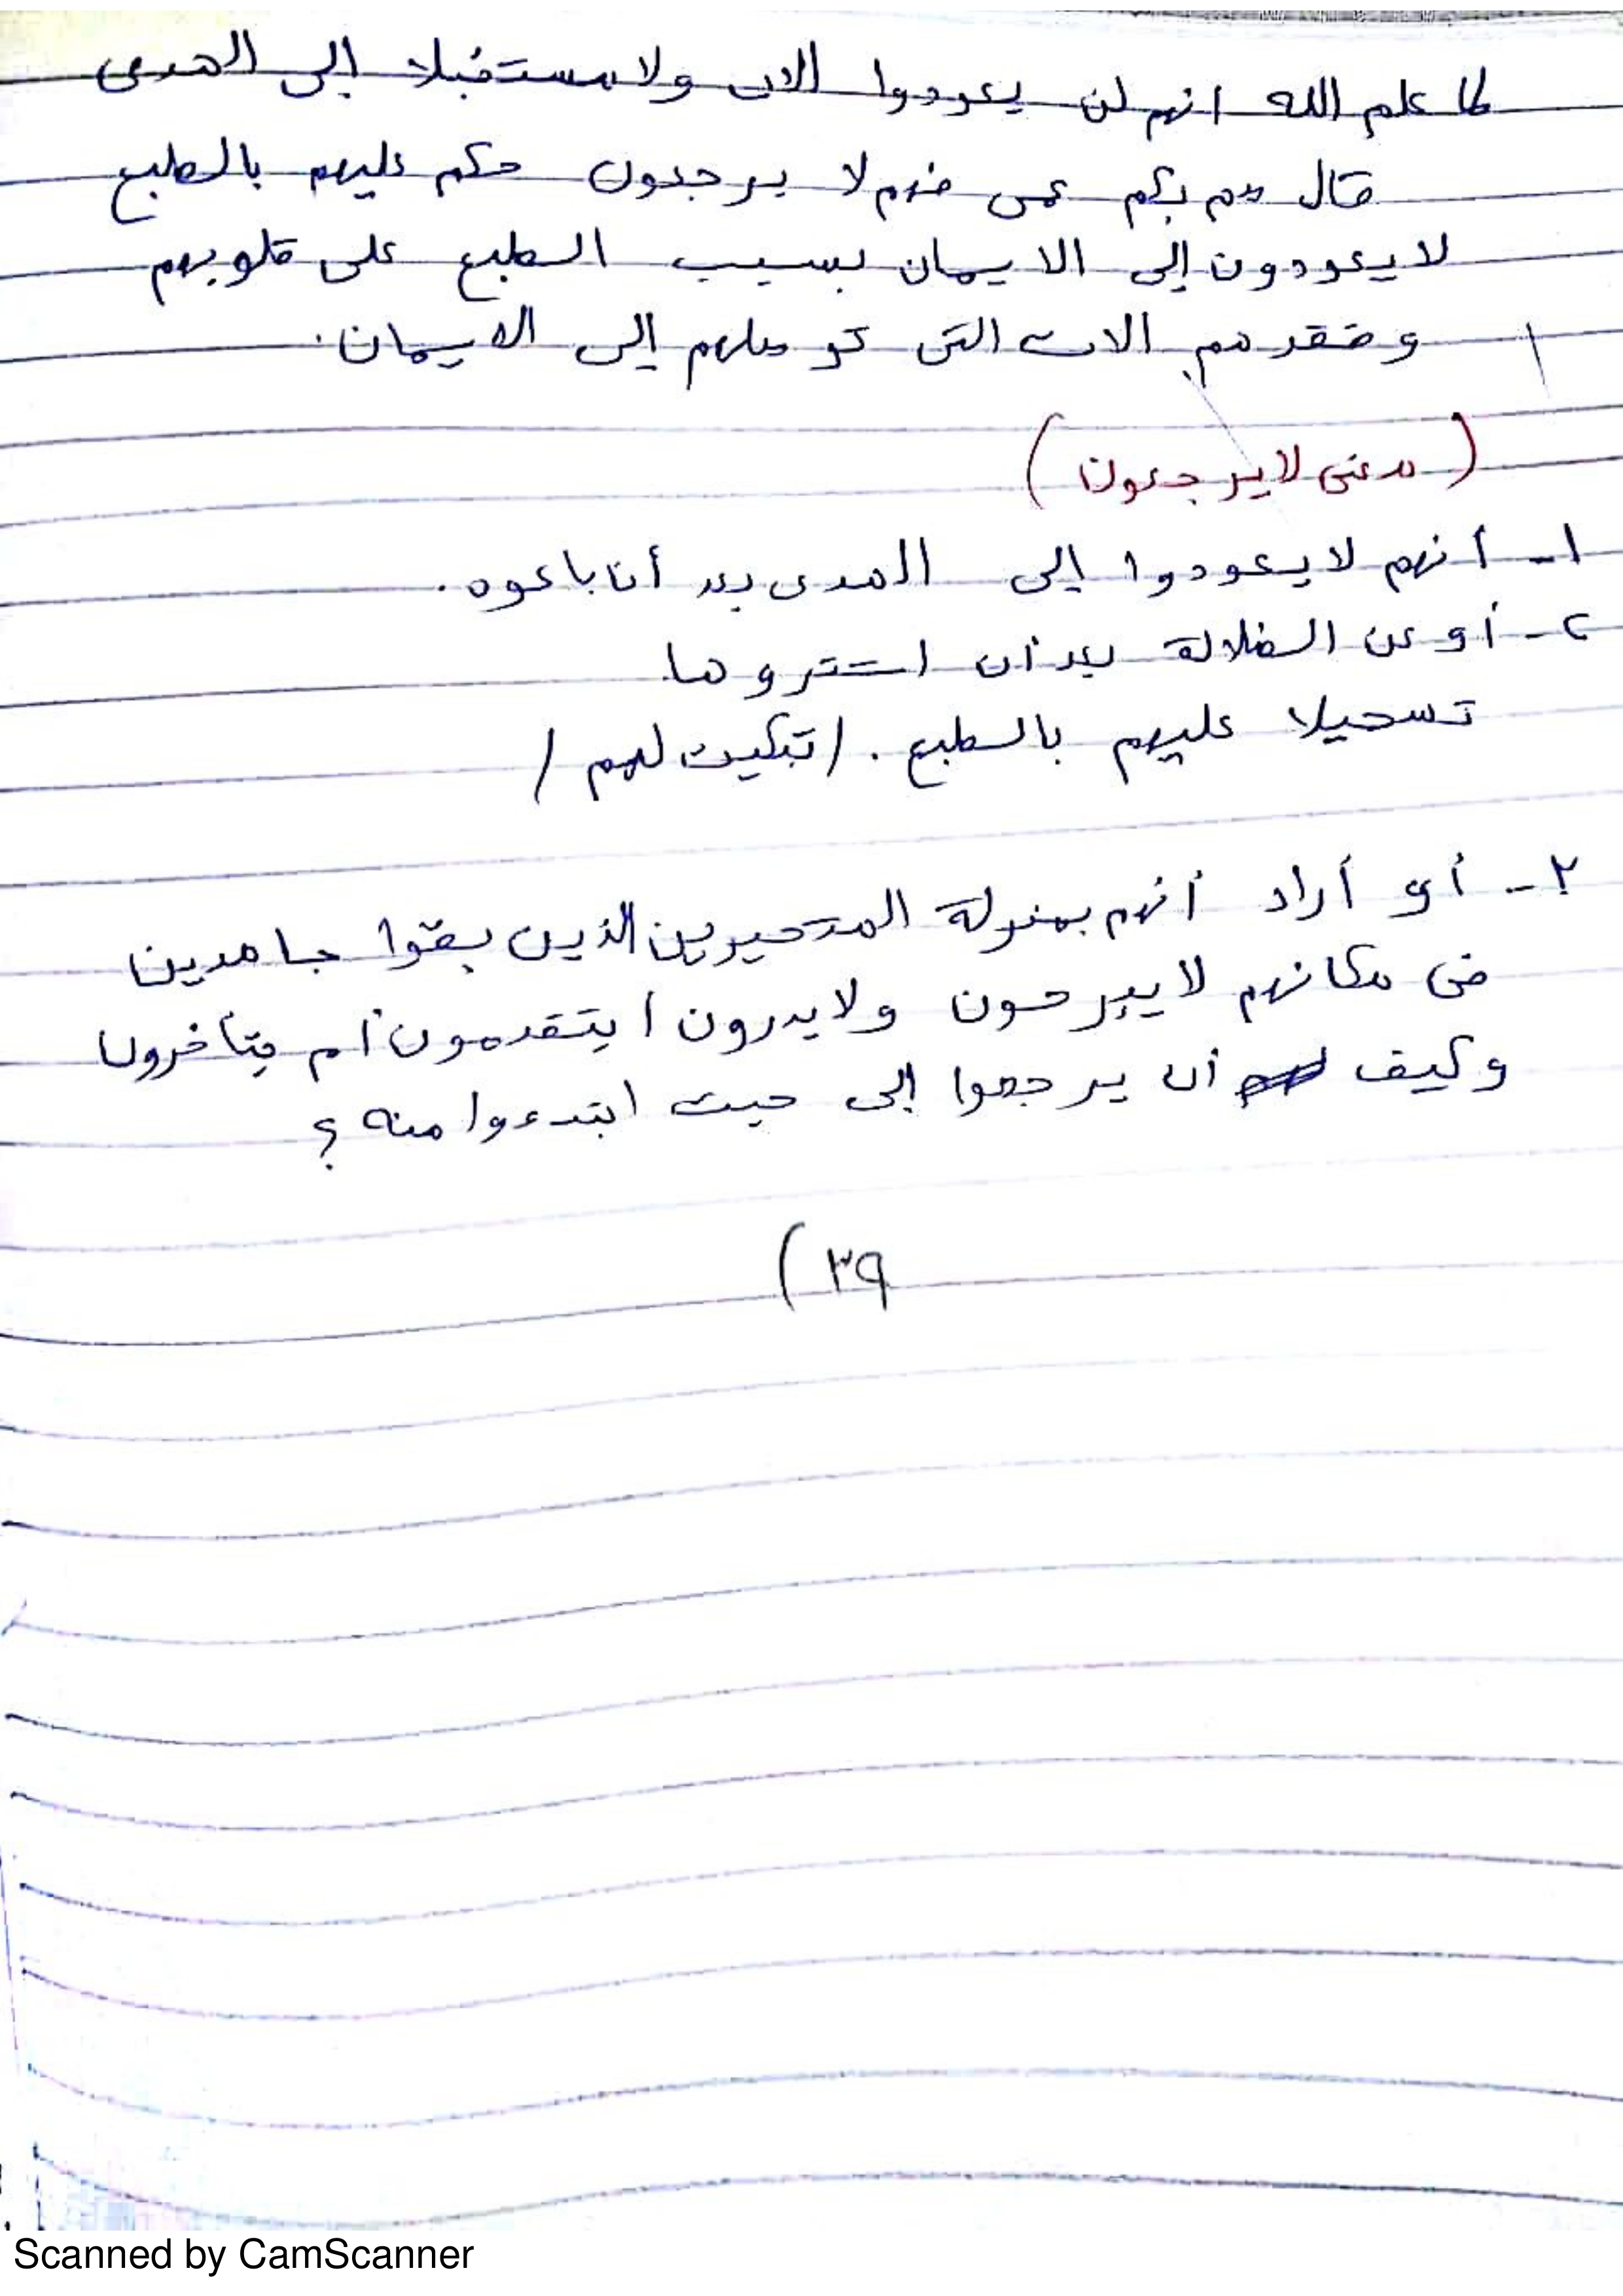 لما علم الله انهم لن يعودوا الان ولا مستقبلا إلى الهدى
قال صم بكم عمى فهم لا يرجعون حكم عليهم بالطبع
لا يعودون إلى الايمان بسبب الطبع على قلوبهم
وفقدهم الات التى توصلهم إلى الايمان.
(معنى لا يرجعون)
١- أنهم لا يعودوا إلى الهدى بعد أن باعوه.
٢- أو عن الضلالة بعد أن اشتروها
تسجيلا عليهم بالطبع. / تبكيت لهم /
٣- أو أراد أنهم بمنزلة المتحيرين الذين بقوا جامدين
فى مكانهم لا يبرحون ولا يدرون ايتقدمون أم يتأخرون
وكيف أن يرجعوا إلى حيث ابتدءوا منه؟
٣٩)
Scanned by CamScanner